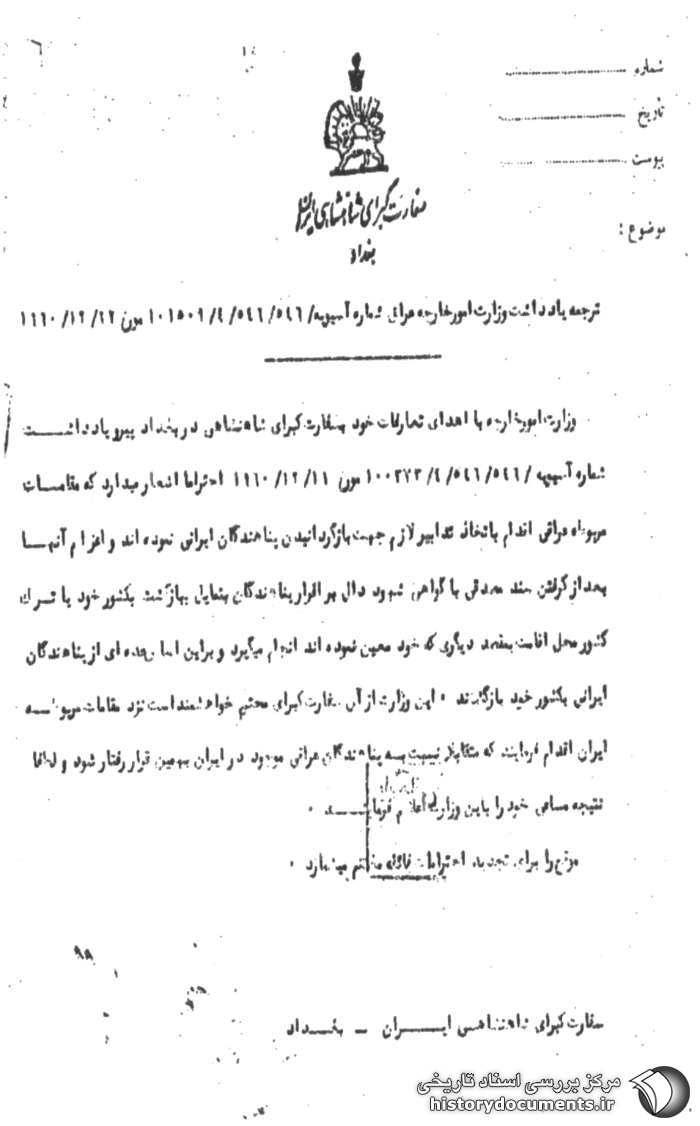 شماره
تاریخ
پیوست
موضوع :
سفارت کبرای شاهنشاهی ایران
بغداد
ترجمه یادداشت وزارت امورخارجه عراق شماره آسیویه/ ٥٤٦/ ٥٤٦/ ٤/ ١٠١٥٠٩ مورخ ٢٢/ ١٢/ ١٩٦٠
وزارت امورخارجه با اهدای تعارفات خود بسفارت کبرای شاهنشاهی در بغداد پیرو یادداشت
شماره آسیویه / ٥٤٦/ ٥٤٦/ ٤/ ١٠٠٣٧٣ مورخ ١١/ ١٢/ ١٩٦٠ احتراما اشعار میدارد که مقامات
مربوطه عراقی اقدام باتخاذ تدابیر لازم جهت بازگردانیدن پناهندگان ایرانی نموده اند و اعزام آنها
بعد از گرفتن سند مصدقی با گواهی شهود دال بر اقرار پناهندگان بتمایل ببازگشت بکشور خود یا ترک
کشور محل اقامت بمقصد دیگری که خود معین نموده اند انجام میگیرد و براین اساس عده ای از پناهندگان
ایرانی بکشور خود بازگشتند ٠ این وزارت از آن سفارت کبرای محترم خواهشمند است نزد مقامات مربوطه
ایران اقدام فرمایند که متقابلا نسبت به پناهندگان عراقی موجود در ایران بهمین قرار رفتار شود و لطفا
نتیجه مساعی خود را باین وزارت اعلام فرمایند ٠
موقع را برای تجدید احترامات فائقه مغتنم میشمارد ٠
سفارت کبرای شاهنشاهی ایران – بغداد
مرکز بررسی اسناد تاریخی
historydocuments.ir